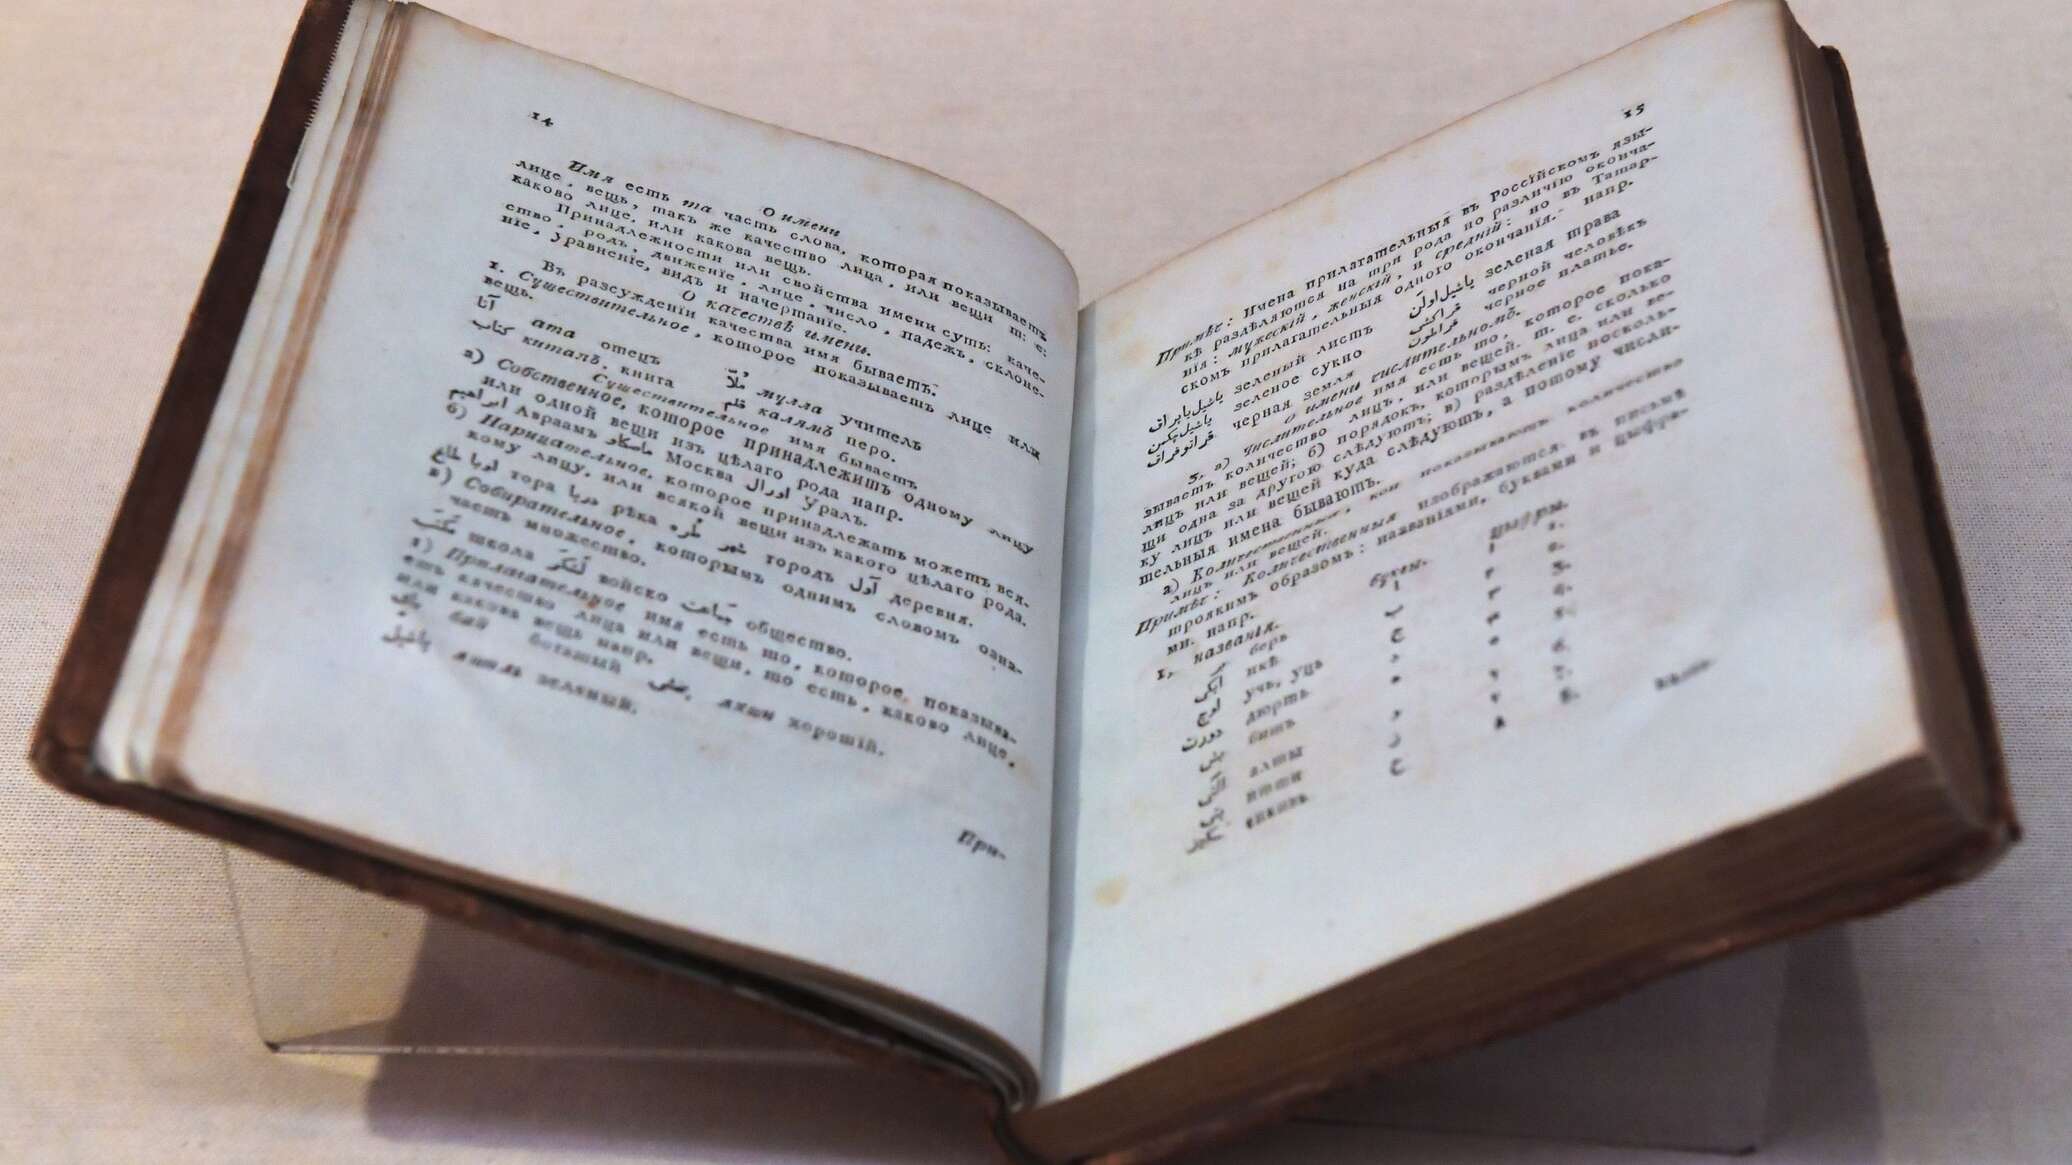 14
О имени
Имя есть та часть слова, которая показываетъ
лице, вещь, такъ же качество лица, или вещи т: е:
каково лице, или какова вещь.
Принадлежности или свойства имени суть: каче-
ство, родъ, движенїе, лице, число, падежъ, склоне-
нїе, уравненїе, видъ и начертанїе.
О качествѣ имени.
Въ разсужденїи качества имя бываетъ:
1. Существительное, которое показываетъ лице или
вещь.
آتا ата отецъ مُلّا мулла учитель
كتاب китапъ, книга قلم калямъ перо.
Существительное имя бываетъ
а) Собственное, которое принадлежитъ одному лицу
или одной вещи изъ цѣлаго рода напр.
ابراهيم Авраамъ ماسكاو Москва اورال Уралъ.
б) Нарицательное, которое принадлежать можетъ вся-
кому лицу, или всякой вещи изъ какого цѣлаго рода.
тора دريا рѣка شهر городъ آول деревня.
в) Собирательное, которымъ однимъ словомъ озна-
часть множество.
مكتب школа لشكر войско جماعت общество.
г) Прилагательное имя есть то, которое показыва-
етъ качество лица или вещи, то есть, каково лице,
или какова вещь напр.
باي бай богатый яхши хорошїй.
ياشيل яшиль зеленый.
При-
15
Примѣч: Имена прилагательныя въ Россїйскомъ язы-
кѣ раздѣляются на три рода по различїю оконча-
нїя: мужескїй, женскїй, и среднїй: но въ Татар-
скомъ прилагательныя одного окончанїя. напр.
ياشيل يابراق зеленый листъ ياشيل اولن зеленая трава
ياشيل چكمن зеленое сукно قراكشي черной человѣкъ
قراتوفراق черная земля قراطون черное платье.
О имени числительномъ.
3, а) Числительное имя есть то, которое пока-
зываетъ количество лицъ, или вещей. т. е. сколько
лицъ или вещей; б) порядокъ, которымъ лица или ве-
щи одна за другою слѣдуютъ; в) раздѣленїе посколь-
ку лицъ или вещей куда слѣдуютъ, а потому числи-
тельныя имена бываютъ.
а) Количественныя, кои показываютъ количество
лицъ или вещей.
Примѣч: Количественныя изображаются. въ письмѣ
троякимъ образомъ: названїями, буквами и цыфра-
ми. напр.
1, названїя. буквы. цыфры.
بر беръ ا ١ 1.
ايكي икѣ ب ٢ 2.
اوچ учь, уцъ ج ٣ 3.
دورت дюртъ د ٤ 4.
بش бишъ ه ٥ 5.
آلتي алты و ٦ 6.
يتي ити ز ٧ 7.
سكيز сикизъ ح ٨ 8.